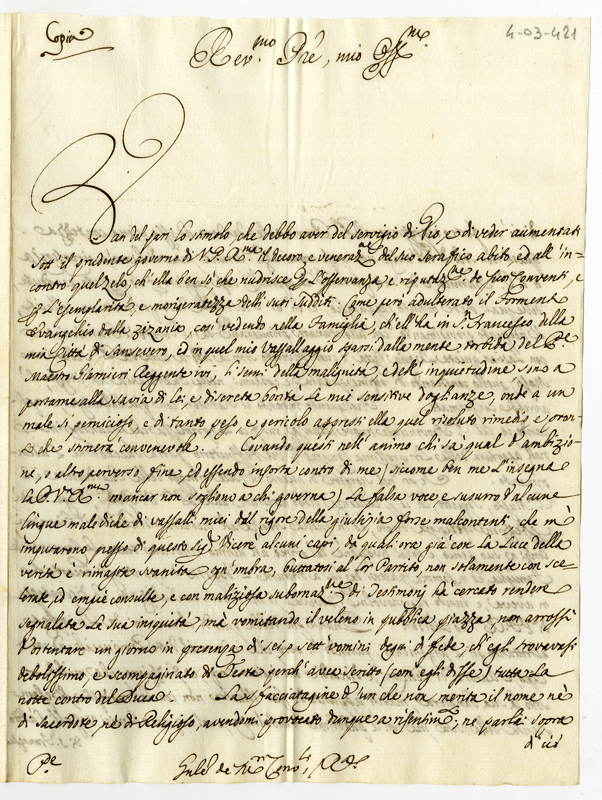 Copia
4-03-421
Rev.mo Prè, mio Oss.mo
Van del pari lo stimolo, che debbo aver del servigio di Dio, e di veder aumentati
sott'il prudente governo di V. P. R.ma il decoro, e veneraz.ne del suo Serafico abito, ed all'in=
contro quel zelo, ch'ella ben sò che nudrisce p l'osservanza, e riputaz.ne de suoi Conventi, e
p l'esemplarità, e morigeratezza delli suoi sudditi. Come però adulterato il formento
Evangelico dalla zazania, così vedendo nella Famiglia, ch'ell'hà in S. Francesco della
mia Città di Sansevero, ed in quel mio Vassallaggio sparsi dalla mente torbida del P.e
Maestro Guarnieri Reggente ivi, li semi della malignità, e dell'inquietudine sono a
portarne alla savia di lei, e discreta bontà le mie sensitive doglianze, onde a un
male sì pernicioso, e di tanto peso, e pericolo appresti ella quel risoluto rimedio, e pron=
to che stimerà convenevole. Covando questi nell'animo chi sa qual d'ambizio=
ne, o altro perverso fine, ed essendo insorta contro di me (siccome ben me l'insegna
la P. V. R.ma mancar non sogliono a chi governa) la falsa voce, e susurro d'alcune
lingue malediche di vassalli miei dal rigore della giustizia forse malcontenti, che m'
imputarono presso di questo Sig.r Vicerè alcuni capi de quali ora già con la luce della
verità è rimasta svanita ogn'ombra, buttatosi al lor Partito, non solamente con sce=
lerate, ed empie consulte, e con maliziosa subornaz.ne di Testimonj hà cercato rendere
segnalata la sua iniquità, mà vomitando il veleno in pubblica piazza, non arrossì
d'ostentare un giorno in presenza di sei, o sett'uomini degni di fede, ch'egli trovavasi
debolissimo e scompaginato di Testa perch'avea scritto (com'egli disse) tutta la
notte contro del Duca. La sfacciatagine d'un che non merita il nome nè
di Sacerdote, nè di Religioso, avendomi provocato dunque a risentim.to, ne parlai sopra
d'ciò
P.e